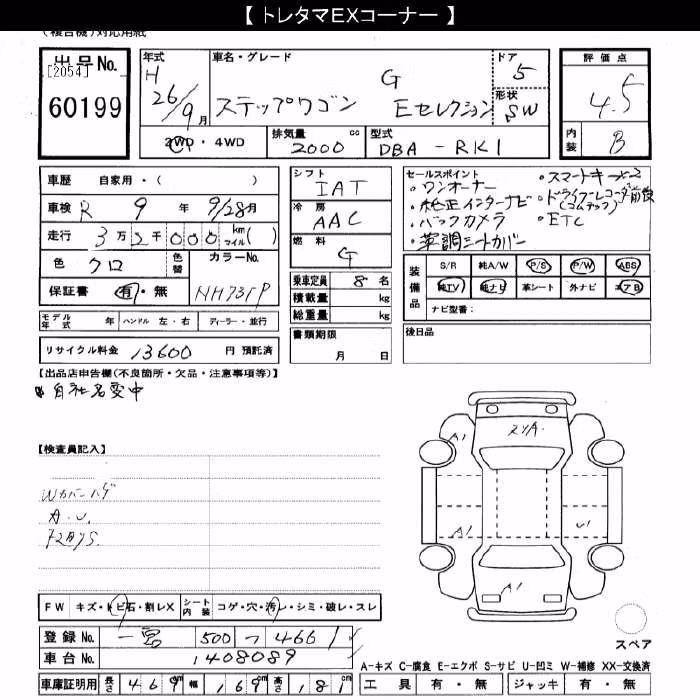 【 トレタマEXコーナー 】
(複合機)対応用紙
出品No.
[2054]
60199
年式
H 26/9月
車名・グレード
G
ステップワゴン Eセレクション
ドア
5
形状
SW
評価点
4.5
内装
B
2WD・4WD
排気量 2000 cc
型式 DBA-RK1
車歴 自家用・( )
車検 R 9 年 9/28月
走行 3万2千000 km マイル( )
色 クロ
色替
カラーNo.
NH731P
保証書 有・無
シフト IAT
冷房 AAC
燃料 G
乗車定員 8 名
積載量 kg
総重量 kg
書類期限
月 日
セールスポイント
・ワンオーナー
・純正インターナビ
・バックカメラ
・革調シートカバー
・スマートキーx2
・ドライブレコーダ前後
(コムテック)
・ETC
装備品
S/R 純A/W P/S P/W ABS
純TV 純ナビ 革シート 外ナビ エアB
ナビ型番:
モデル年式 年 ハンドル 左・右 ディーラー・並行
後日品
リサイクル料金 13600 円 預託済
【出品店申告欄(不良箇所・欠品・注意事項等)】
※自社名変中
【検査員記入】
Wカバーハゲ
A.U.
A1
A1
A1
U1
FW キズ・トビ石・割レX シート内装 コゲ・穴・汚レ・シミ・破レ・スレ
登録No. 一宮 500 つ 4661
車台No. 1408089
車庫証明用 長さ 469cm 幅 169cm 高さ 181cm
スペア
A-キズ C-腐食 E-エクボ S-サビ U-凹ミ W-補修 XX-交換済
工具 有・無 ジャッキ 有・無